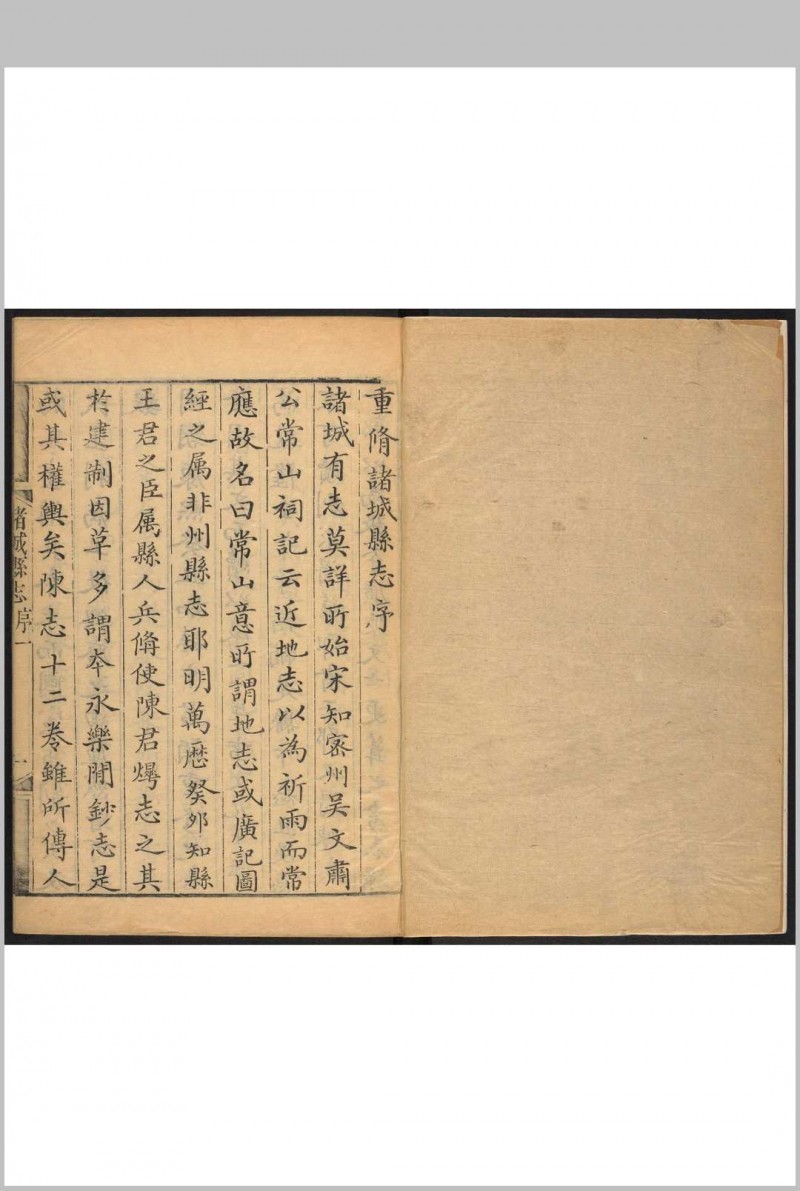 重脩諸城縣志序
諸城有志莫詳所始宋知密州吴文肅
公常山祠記云近地志以為祈雨而常
應故名曰常山意所謂地志或廣記圖
經之属非州縣志耶明萬厯癸夘知縣
王君之臣属縣人兵脩使陳君燁志之其
於建制因革多謂本永樂閒鈔志是
或其權輿矣陳志十二卷雖所傳人
諸城縣志 序一 一